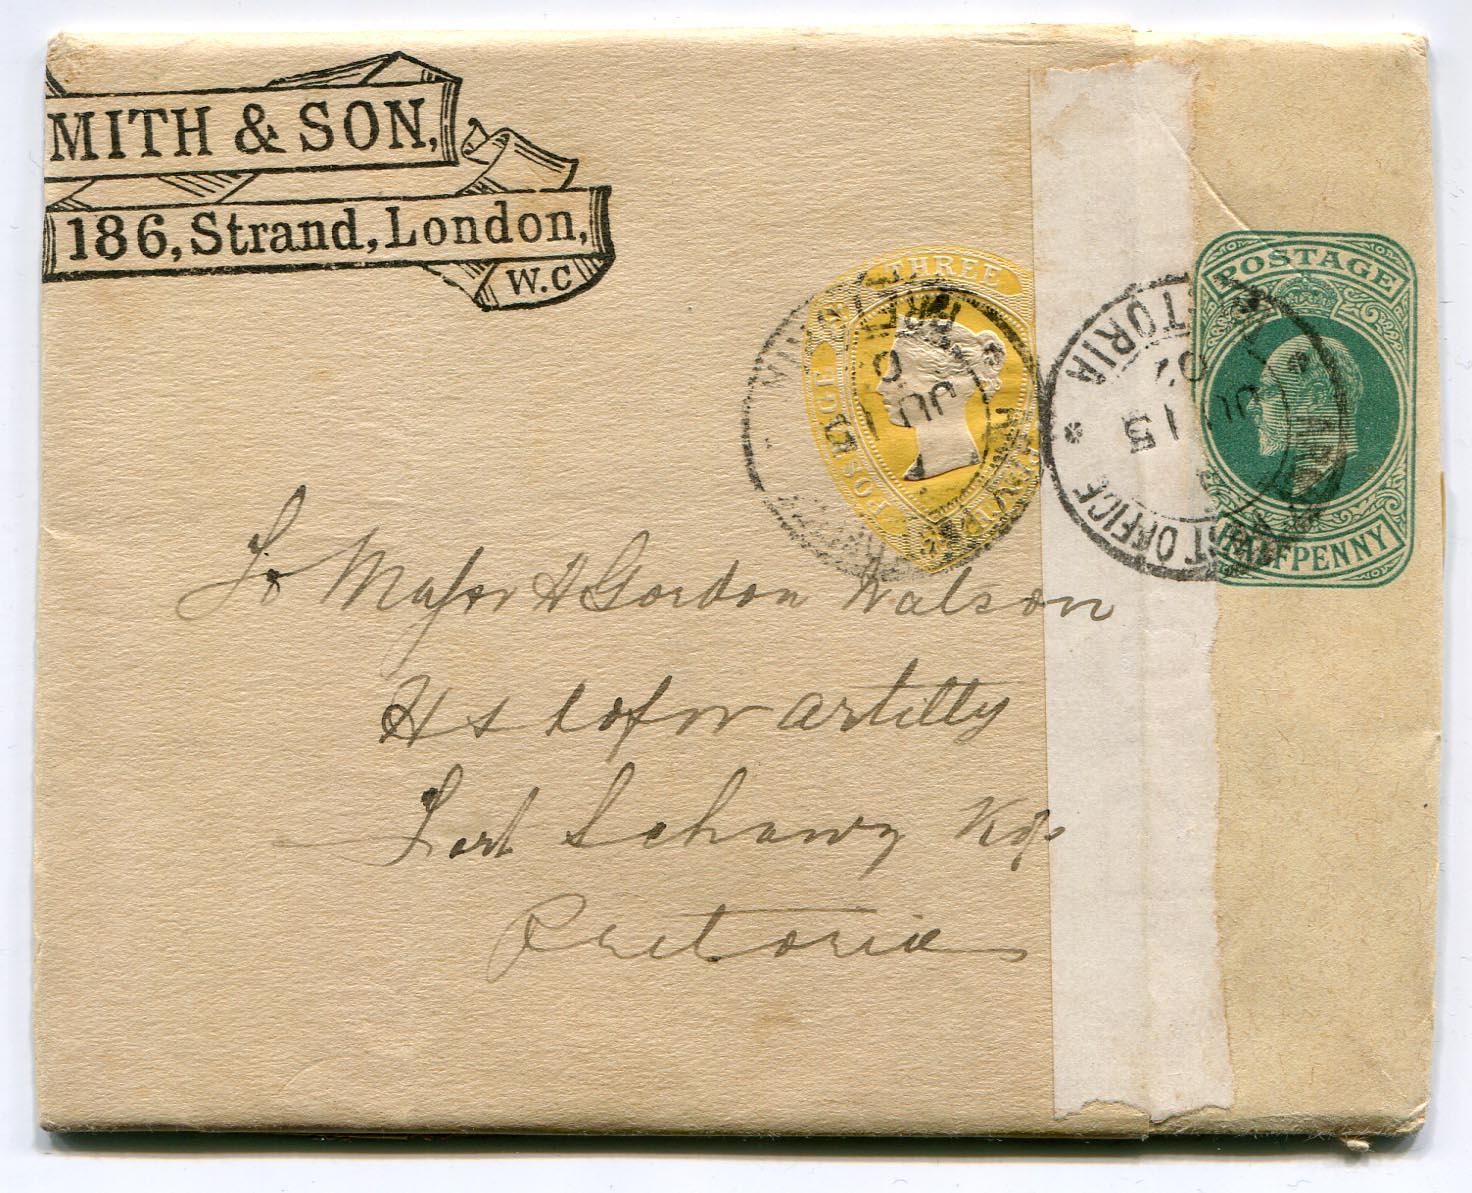 MITH & SON,
186, Strand, London,
W.C
THREE
POSTAGE
POSTAGE
HALFPENNY
POST OFFICE
TORIA
JU 15
02
To Major H Gordon Watson
Artilly
Fort Schanz Kop
Pretoria